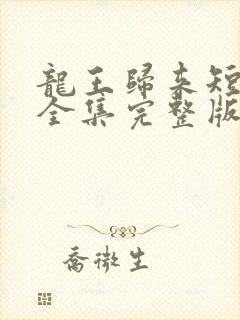 龍王歸來短
全集完整版
喬微生